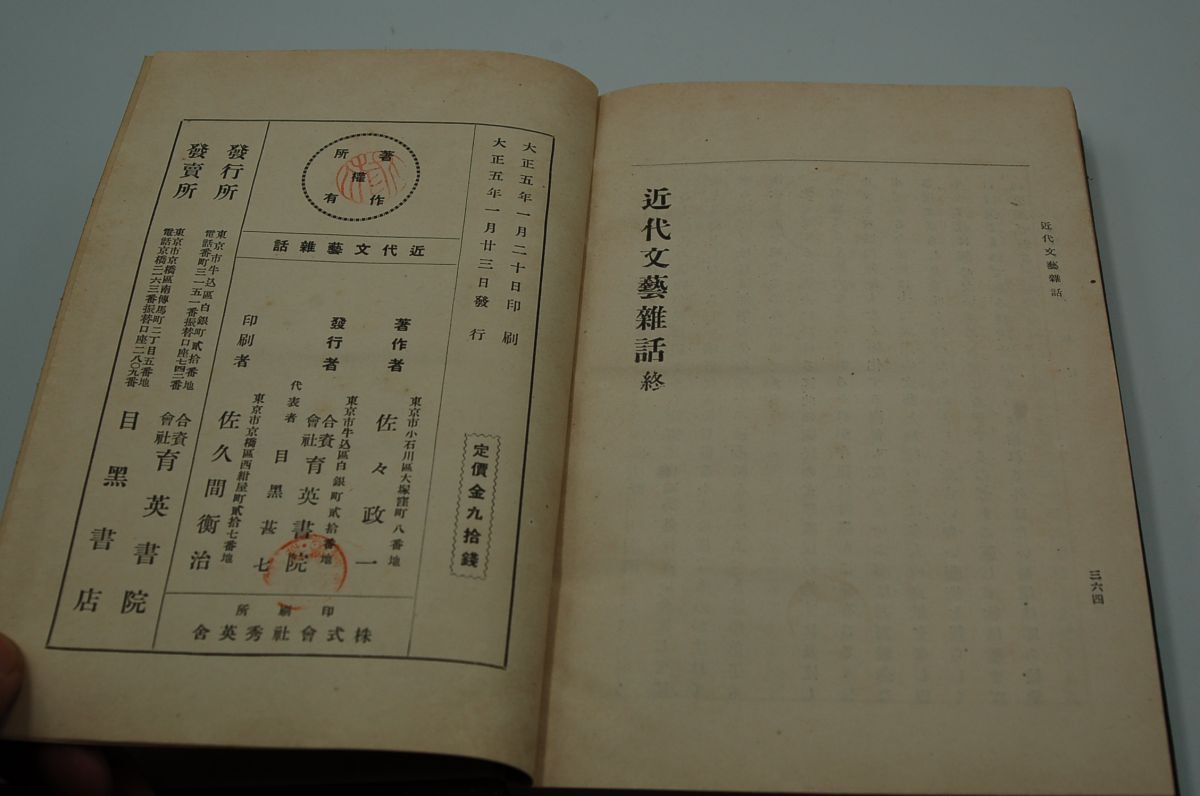 近代文藝雜話
三六四
近代文藝雜話終
大正五年一月二十日印刷
大正五年一月廿三日發行
定價金九拾錢
著作權所有
近代文藝雜話
著作者
東京市小石川區大塚窪町八番地
佐々政一
發行者
東京市牛込區白銀町貳拾番地
合資會社育英書院
代表者
目黑甚七
印刷者
東京市京橋區西紺屋町貳拾七番地
佐久間衡治
印刷所
株式會社秀英舍
發行所
東京市牛込區白銀町貳拾番地
電話番町三一五一番振替口座七四二番
合資會社育英書院
發賣所
東京市京橋區南傳馬町二丁目五番地
電話京橋二六三番振替口座二八〇九番
目黑書店